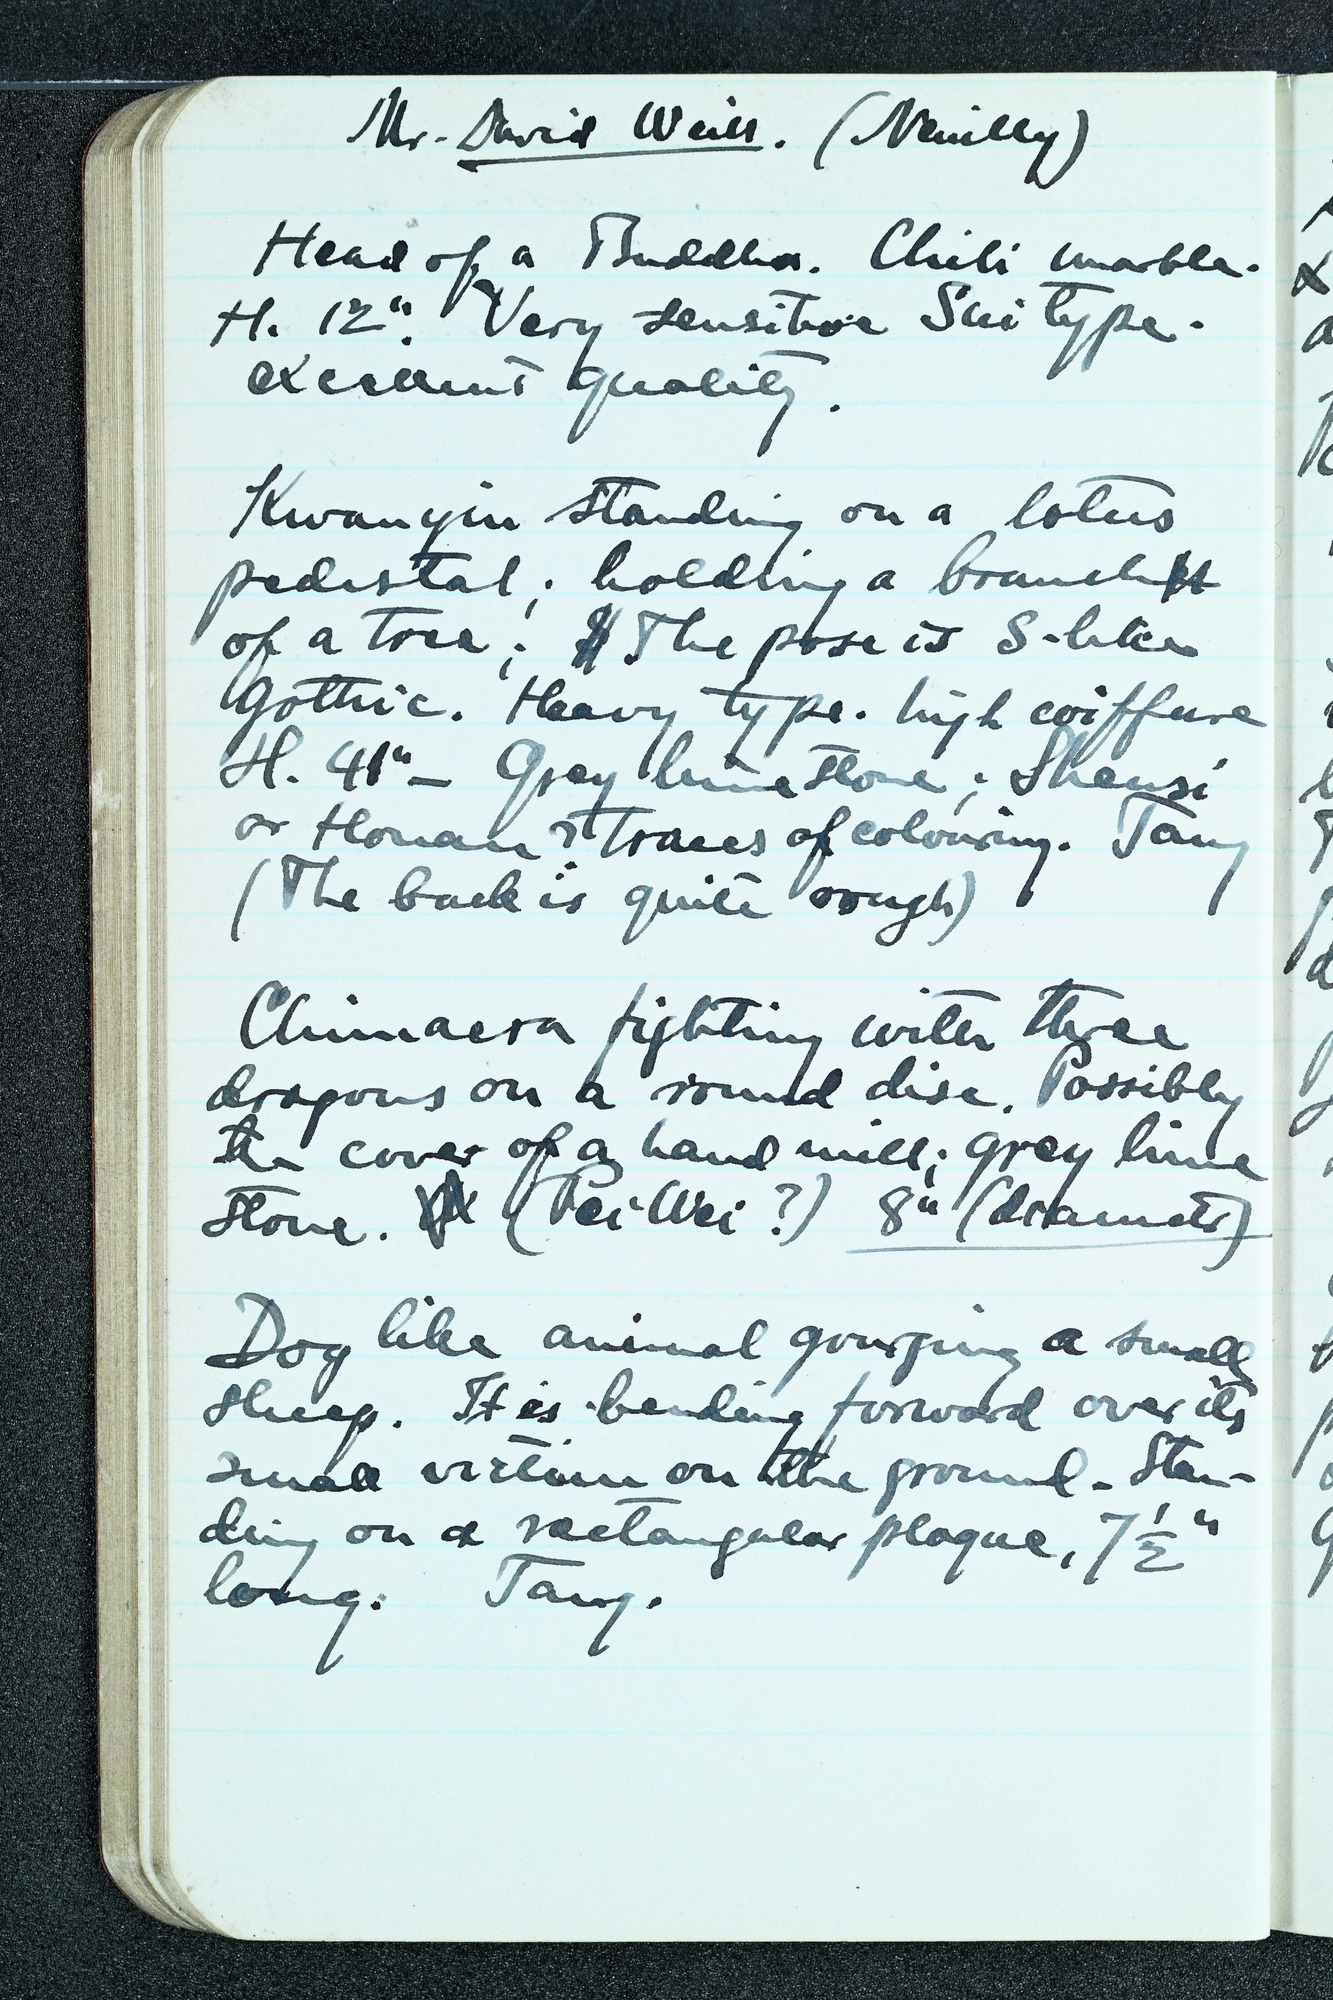 Mr. David Weill. (Neuilly)
Head of a Buddha. Chili marble.
H. 12". Very sensitive Sui type.
excellent quality.
Kwanyin standing on a lotus
pedestal; holding a branch
of a tree; The pose is S-like
Gothic. Heavy type. high coiffure
H. 41" – Grey limestone; Shensi
or Honan? traces of colouring. Tang
(The back is quite rough)
Chimaera fighting with three
dragons on a round disc. Possibly
the cover of a hand mill; grey lime
stone. (Pei Wei?) 8" (diameter)
Dog like animal gourging a small
sheep. It is bending forward over its
small victim on the ground - Stan-
ding on a rectangular plaque, 7½"
long. Tang.